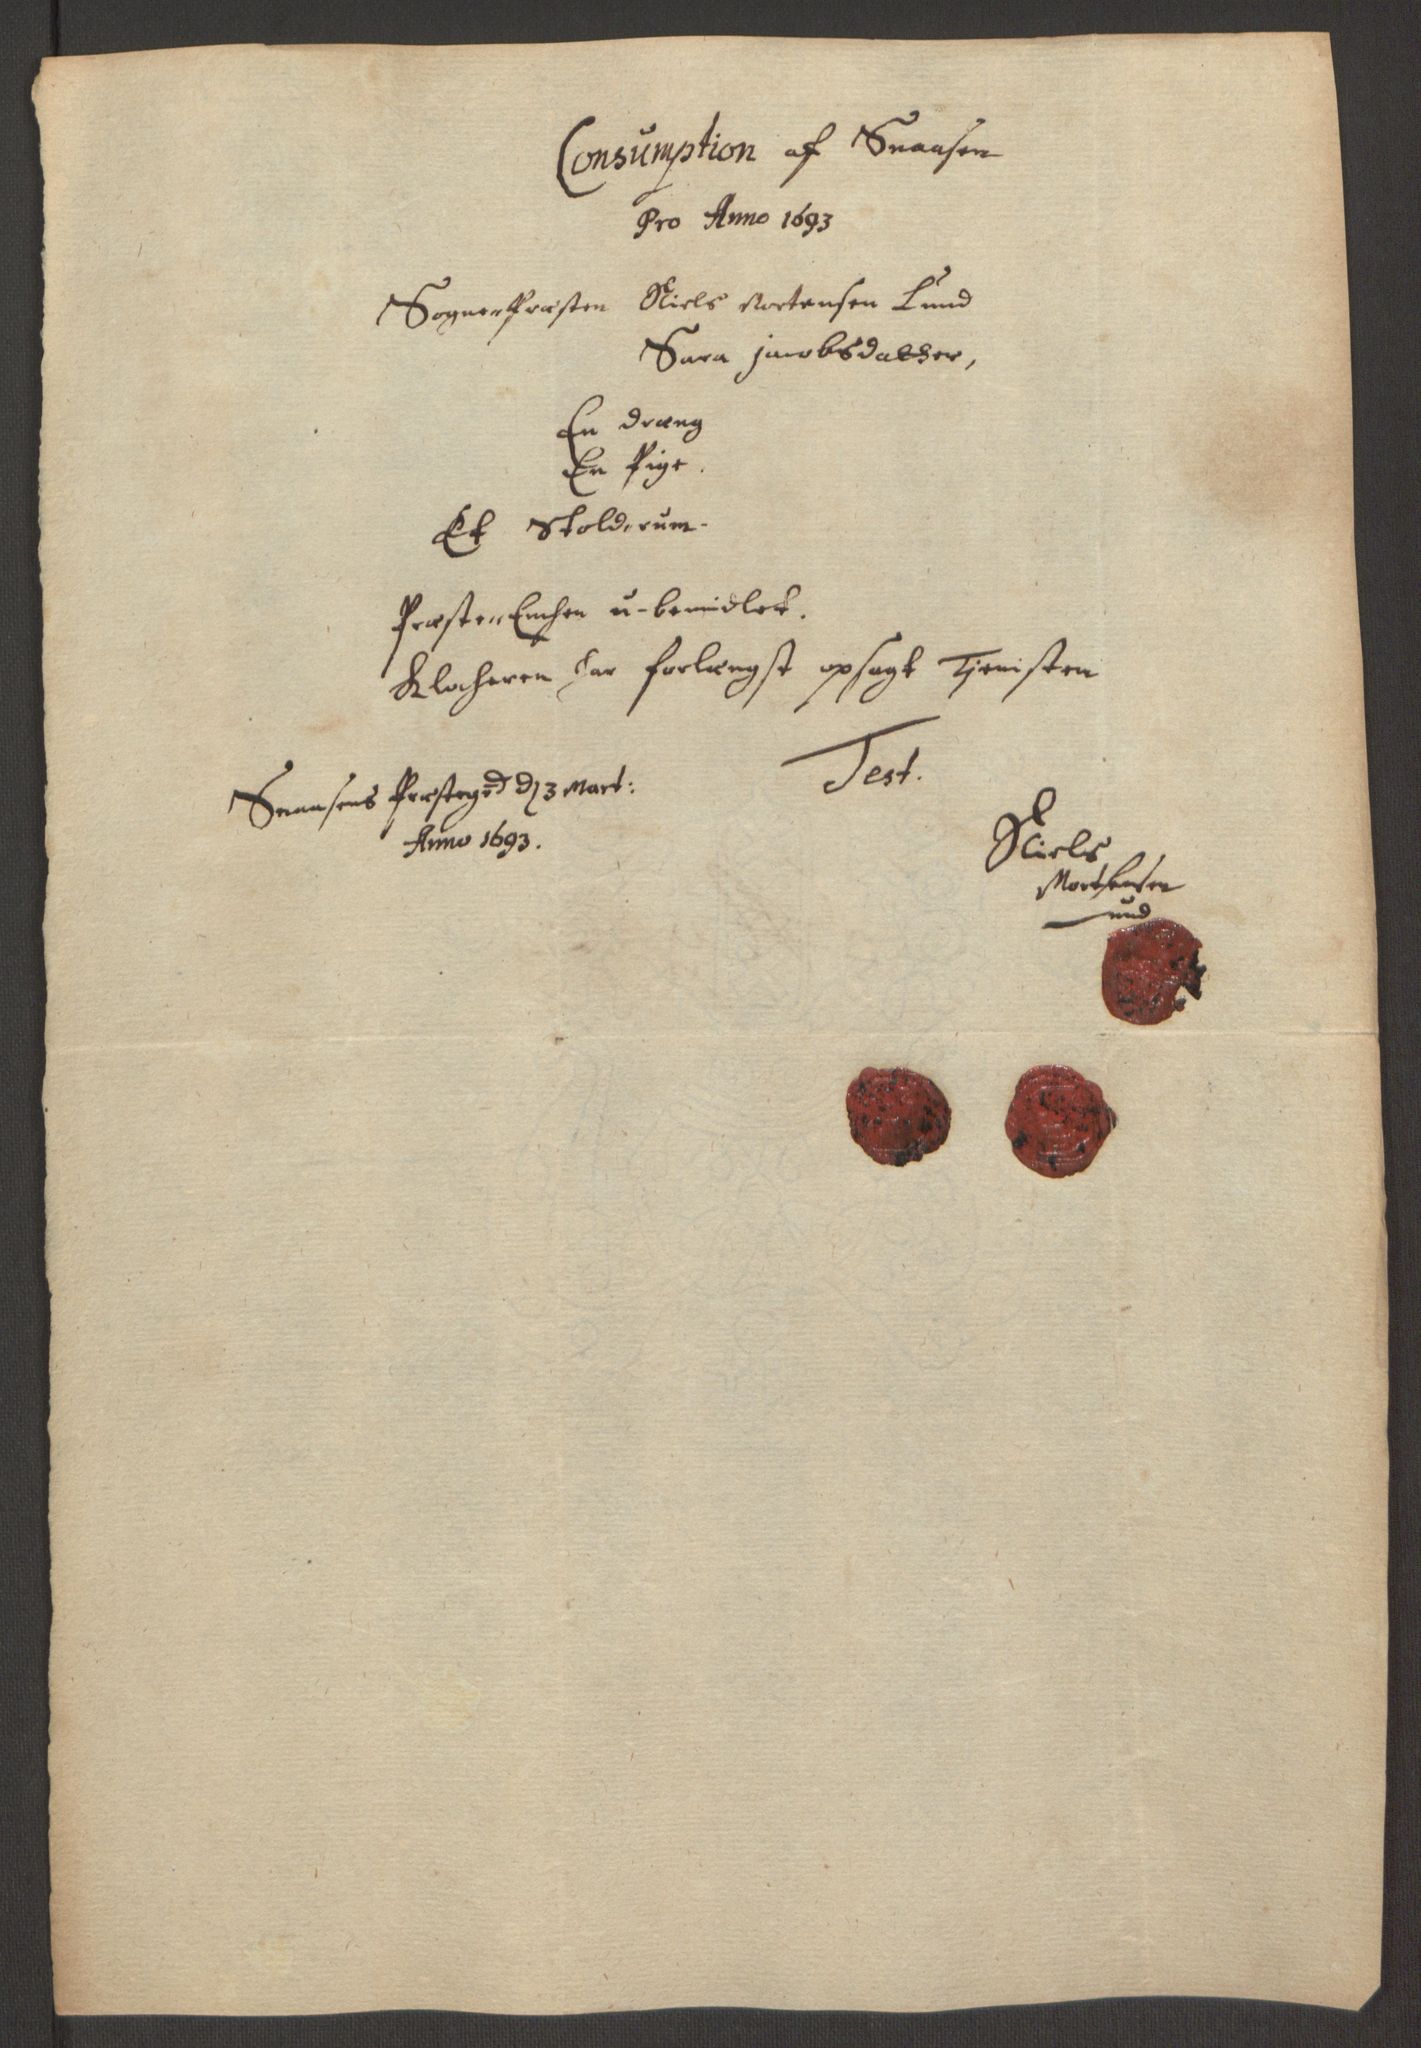 Consumption af Snaasen
Pro Anno 1693
Sogne Præsten Niels Mortensen Lund
Sara Jacobsdatter,
En dræng
En Pige.
Et Ildsrum
Præste Enchen u-bemidlet.
Klocheren har forlængst opsagt Tjenisten
Test.
Snaasens Præstegrd d 3 Mart:
Anno 1693.
Niels
Mortensen
Lund